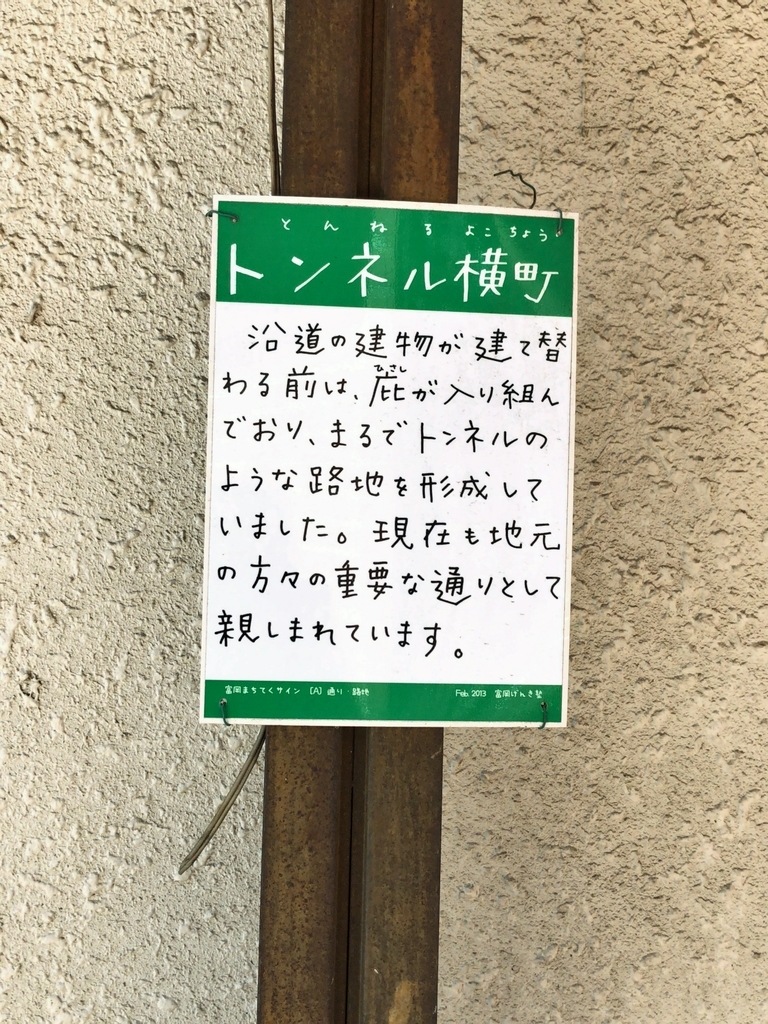 とんねるよこちょう
トンネル横町
沿道の建物が建て替
ひさし
わる前は、庇が入り組ん
でおり、まるでトンネルの
ような路地を形成して
いました。現在も地元
の方々の重要な通りとして
親しまれています。
富岡まちてくサイン [A] 通り・路地 Feb. 2013 富岡げんき塾